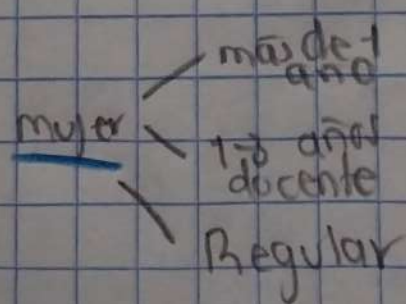 mujer
más de 1
año
1-3 años
docente
Regular